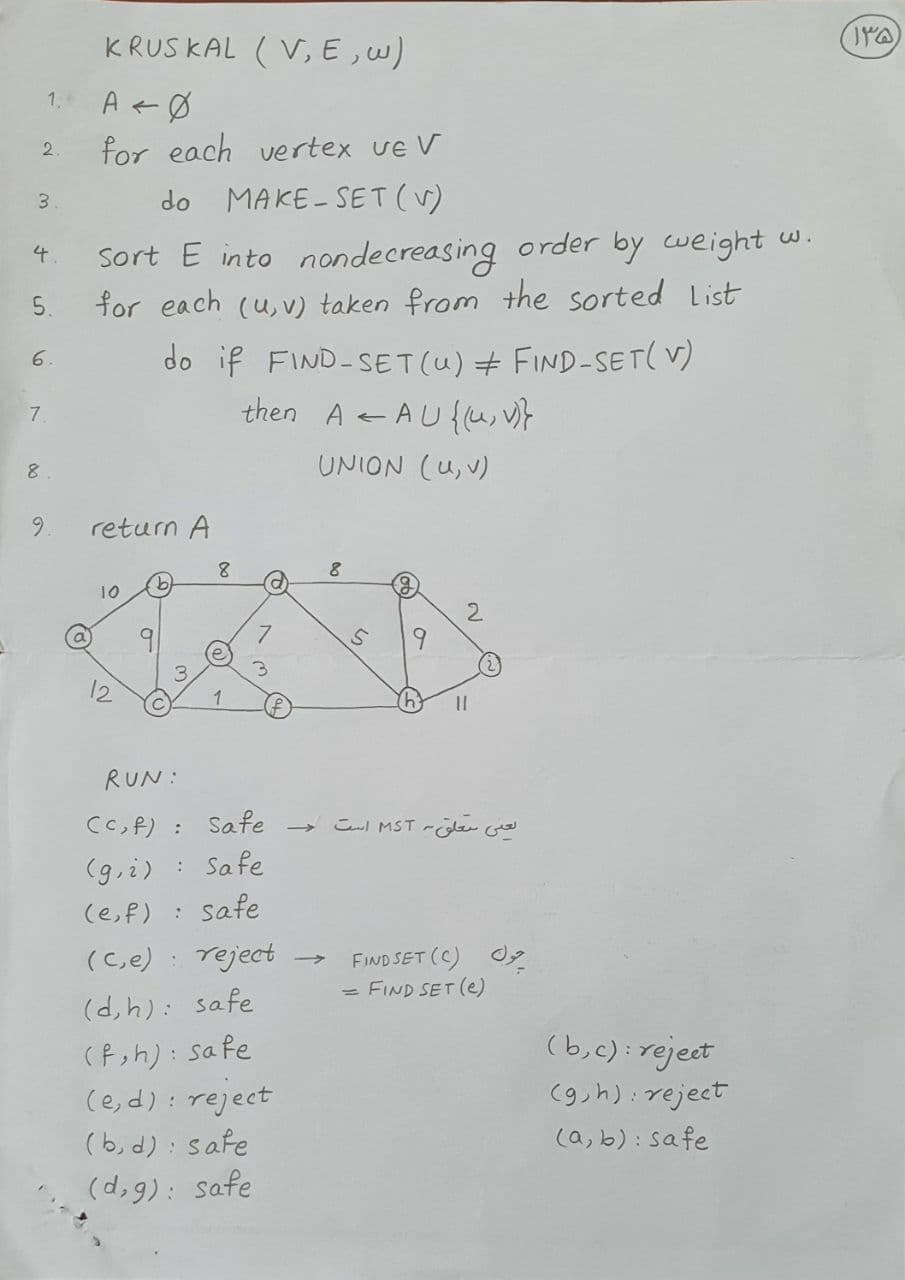 ۱۳۵
KRUSKAL (V, E, w)
1. A ← ∅
2. for each vertex v∈V
3. do MAKE-SET(v)
4. sort E into nondecreasing order by weight w.
5. for each (u,v) taken from the sorted List
6. do if FIND-SET(u) ≠ FIND-SET(v)
7. then A ← A ∪ {(u,v)}
8. UNION (u,v)
9. return A
10 b 8 d 8 g 2
a 9 e 7 5 9 i
12 c 3 1 3 f h 11
RUN:
(c,f) : safe → یعنی متعلق به MST است
(g,i) : safe
(e,f) : safe
(c,e) : reject → چون FINDSET(c)
= FINDSET(e)
(d,h) : safe
(f,h) : safe
(e,d) : reject
(b,d) : safe
(d,g) : safe
(b,c) : reject
(g,h) : reject
(a,b) : safe